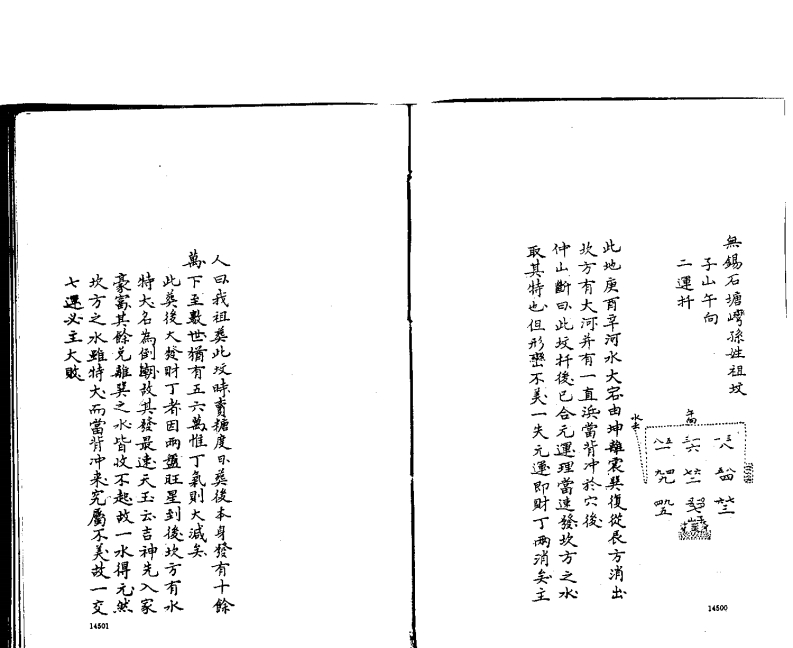 無錫石塘灣孫姓祖坟
子山午向
二運扦
午向
水去
此地庚酉辛河水大宕由坤離震巽復從艮方消出
坎方有大河并有一直浜當背冲於穴後
仲山斷曰此坟扦後已合元運理當速發坎方之水
取其特也但形巒不美一失元運即財丁兩消矣主
14500
人曰我祖葬此坟時賣糖度日葬後本身發有十餘
萬下至數世猶有五六萬惟丁氣則大減矣
此葬後大發財丁者因兩盤旺星到後坎方有水
特大名為倒潮故其發最速天玉云吉神先入家
豪富其餘兌離巽之水皆收不起故一水得元然
坎方之水雖特大而當背冲來究屬不美故一交
七運必主大敗
14501